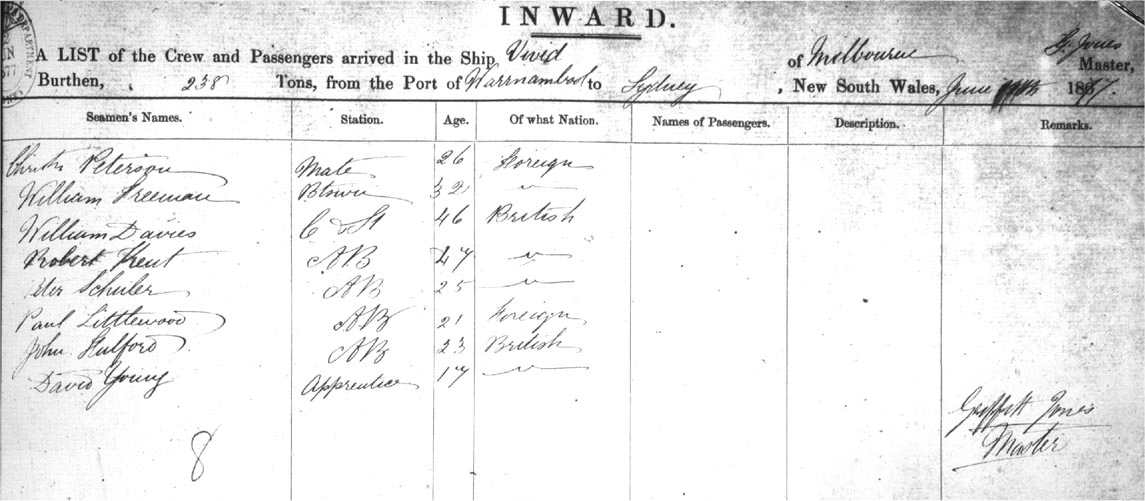 INWARD.
A LIST of the Crew and Passengers arrived in the Ship Vivid of Melbourne Jones Master,
Burthen, 238 Tons, from the Port of Warrnambool to Sydney, New South Wales, June 1877.
Seamen's Names. Station. Age. Of what Nation. Names of Passengers. Description. Remarks.
Peterson Mate 26 Foreign
William Freeman 32 "
William Davies C & St 46 British
Robert Kent AB 47 "
Peter Schuler AB 25 "
Paul Littlewood AB 21 Foreign
John Fulford AB 23 British
David Young Apprentice 17 "
Jones
Master
8